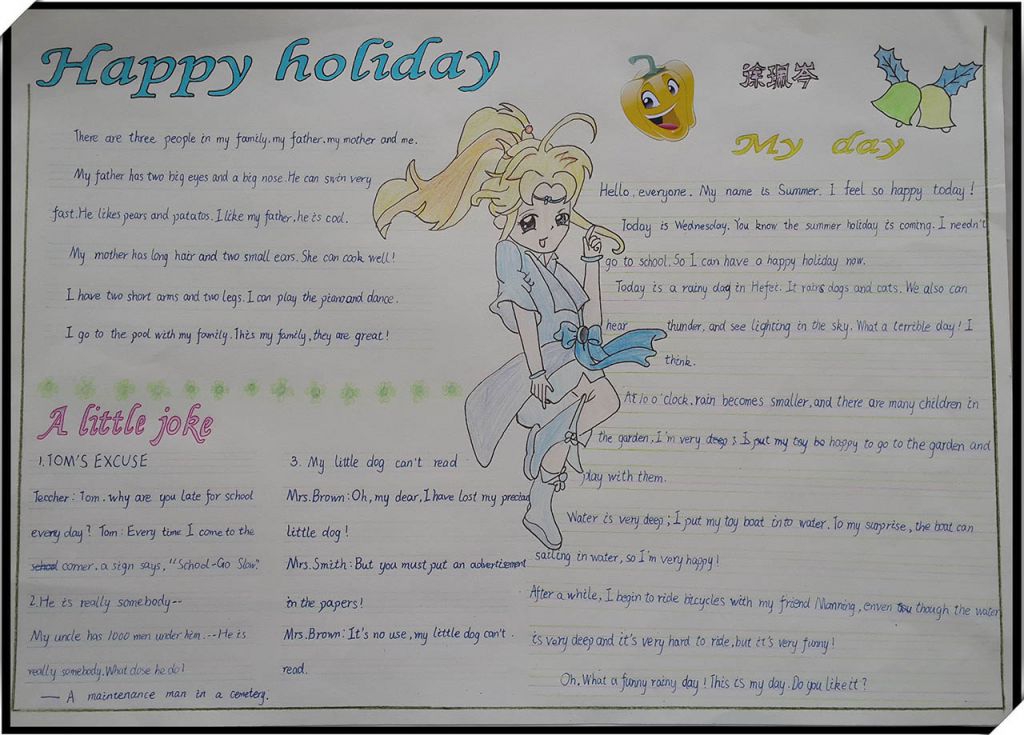 Happy holiday
There are three people in my family. my father. my mother and me.
My father has two big eyes and a big nose. He can swin very
fast. He likes pears and patatos. I like my father, he is cool.
My mother has long hair and two small ears. She can cook well!
I have two short arms and two legs. I can play the piano and dance.
I go to the pool with my family. This my family, they are great!
A little joke
1. TOM'S EXCUSE
Teccher: Tom. why are you late for school
every day? Tom: Every time I come to the
corner. a sign says, "School-Go Slow."
2. He is really somebody--
My uncle has 1000 men under him. -- He is
really somebody. What dose he do?
— A maintenance man in a cemetery.
3. My little dog can't read
Mrs. Brown: Oh, my dear, I have lost my precious
little dog!
Mrs. Smith: But you must put an advertisement
in the papers!
Mrs. Brown: It's no use, my little dog can't.
read.
徐珮岑
My day
Hello. everyone. My name is Summer. I feel so happy today!
Today is Wednesday. You know the summer holiday is coming. I needn't
go to school. So I can have a happy holiday now.
Today is a rainy day in Hefei. It rains dogs and cats. We also can
hear thunder, and see lighting in the sky. What a terrible day! I
think.
At 10 o'clock, rain becomes smaller, and there are many children in
the garden, I'm very deep; I put my toy bo happy to go to the garden and
play with them.
Water is very deep; I put my toy boat into water. To my surprise, the boat can
sailing in water, so I'm very happy!
After a while, I begin to ride bicycles with my friend Manning, enven though the water
is very deep and it's very hard to ride, but it's very funny!
Oh. What a funny rainy day! This is my day. Do you like it?